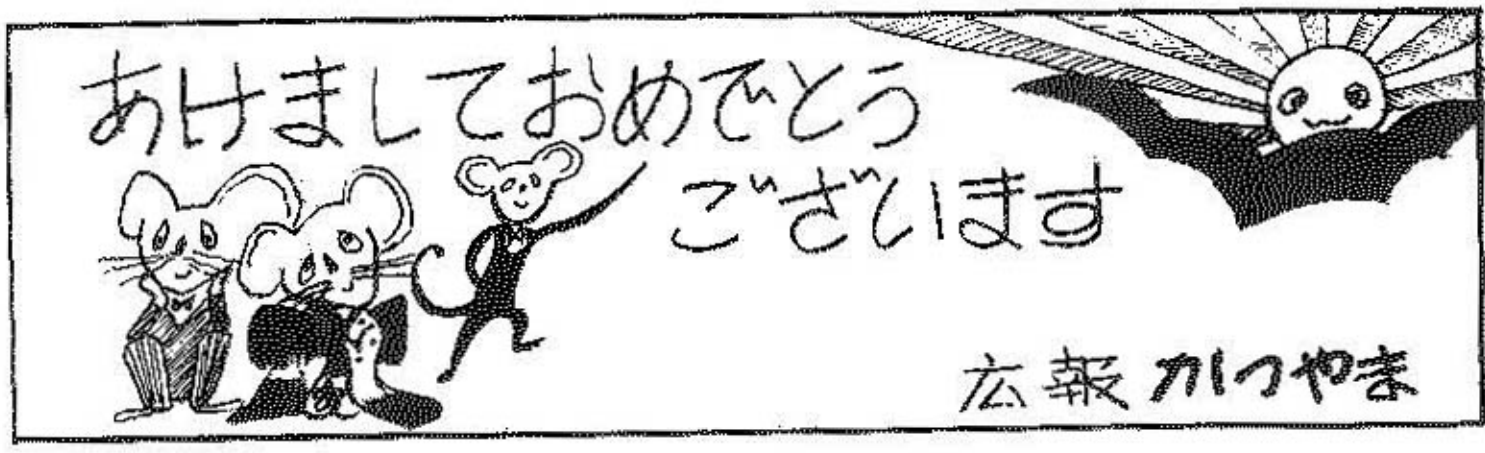 あけましておめでとう
ございます
広報かつやま